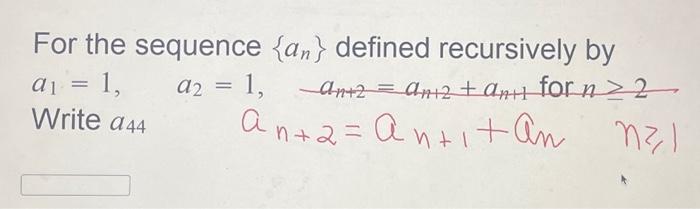 For the sequence {aₙ} defined recursively by
a₁ = 1, a₂ = 1, aₙ₊₂ = aₙ₊₂ + aₙ₊₁ for n ≥ 2
Write a₄₄
aₙ₊₂ = aₙ₊₁ + aₙ n ≥ 1